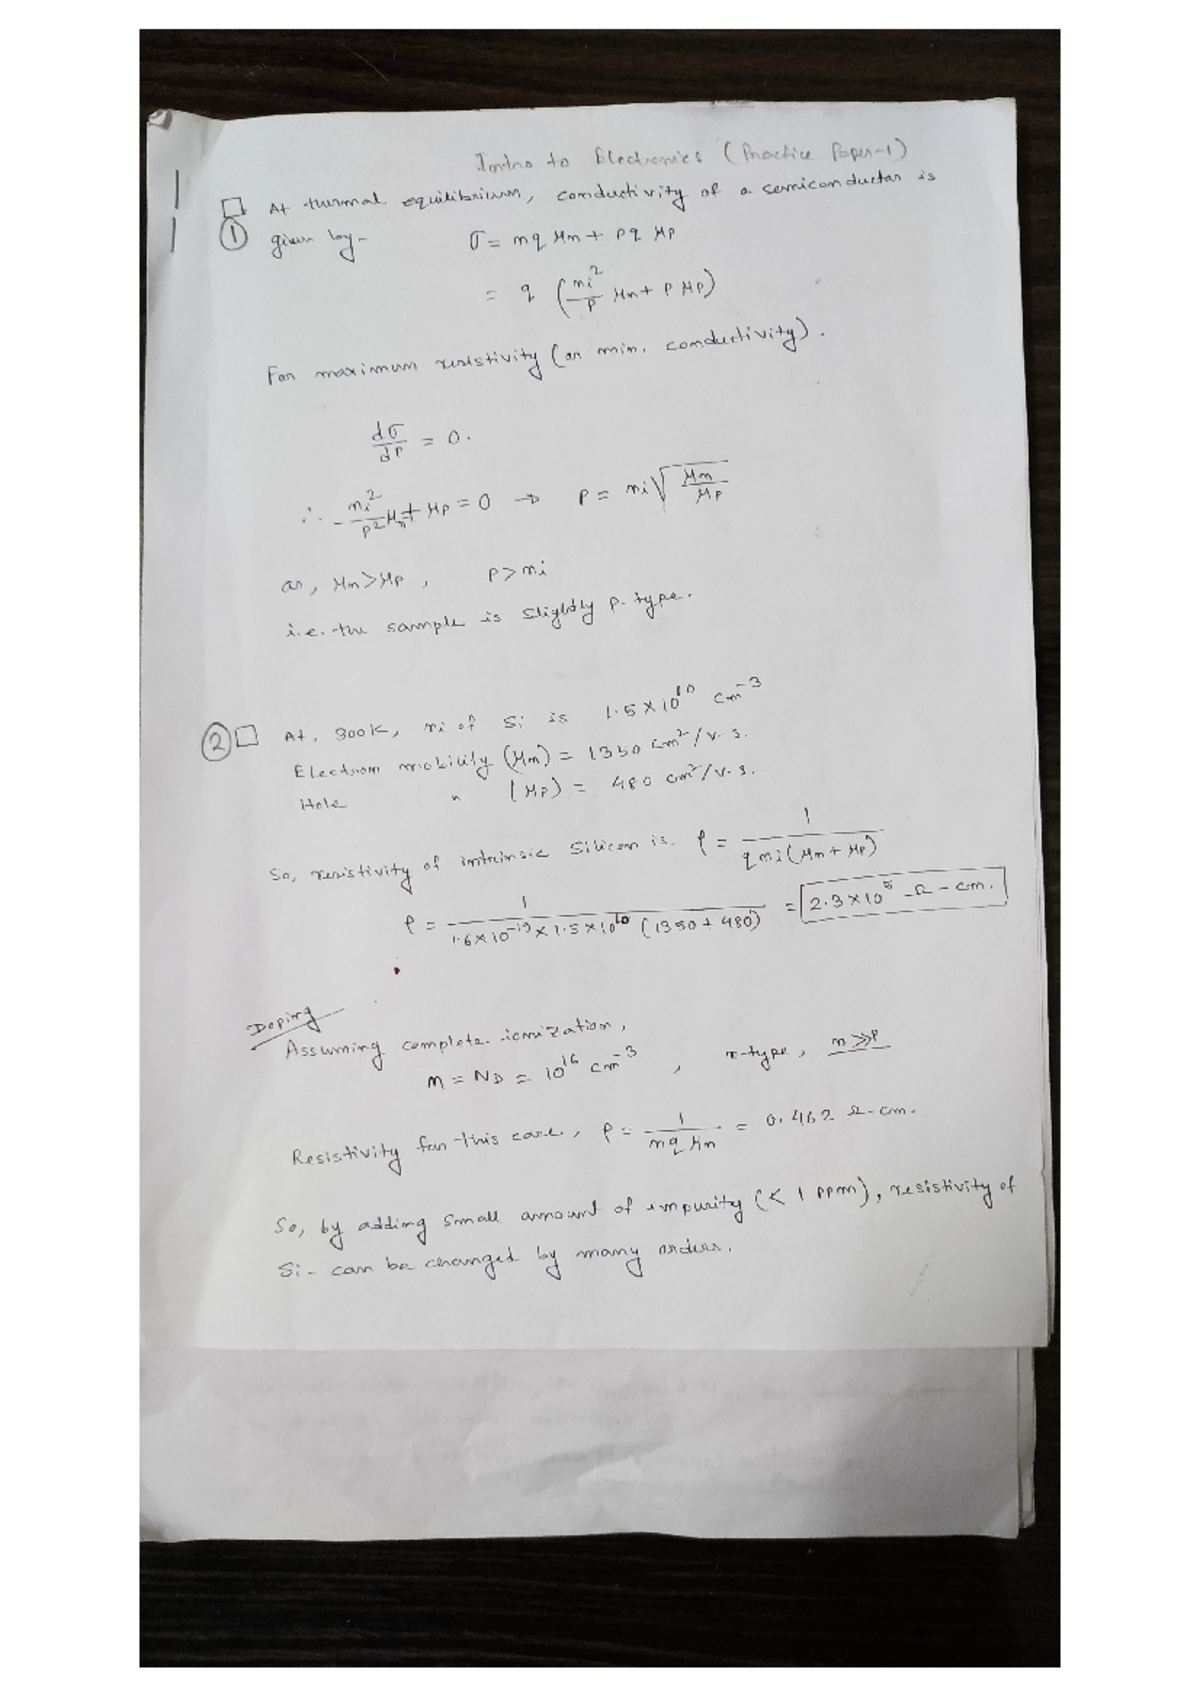 Intro to Electronics (Practice Paper-1)
① At thermal equilibrium, conductivity of a semiconductor is
given by- σ = nq μn + pq μp
= q (ni²/p μn + p μp)
For maximum resistivity (or min. conductivity).
dσ/dp = 0.
∴ - ni²/p² μn + μp = 0 → p = ni √(μn/μp)
as, μn > μp , p > ni
i.e. the sample is slightly p-type.
② At, 300K, ni of Si is 1.5 × 10¹⁰ cm⁻³
Electron mobility (μn) = 1350 cm²/v-s.
Hole " (μp) = 480 cm²/v-s.
So, resistivity of intrinsic Silicon is. ρ = 1/(q ni (μn + μp))
ρ = 1/(1.6×10⁻¹⁹ × 1.5×10¹⁰ (1350 + 480)) = 2.3×10⁵ Ω-cm.
Doping
Assuming complete ionization,
n = ND = 10¹⁶ cm⁻³ , n-type, n≫p
Resistivity for this case, ρ = 1/(nq μn) = 0.462 Ω-cm.
So, by adding small amount of impurity (< 1 ppm), resistivity of
Si- can be changed by many orders.